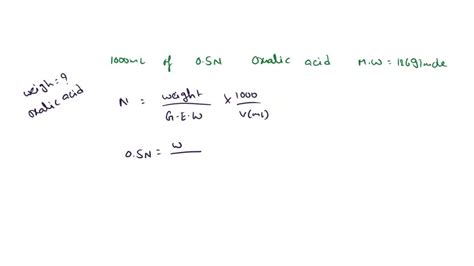 1000mL of 0.5N Oxalic acid M.W = 126g/mole
weigh = ?
oxalic acid
N = weight / G.E.W × 1000 / V(mL)
0.5N = W